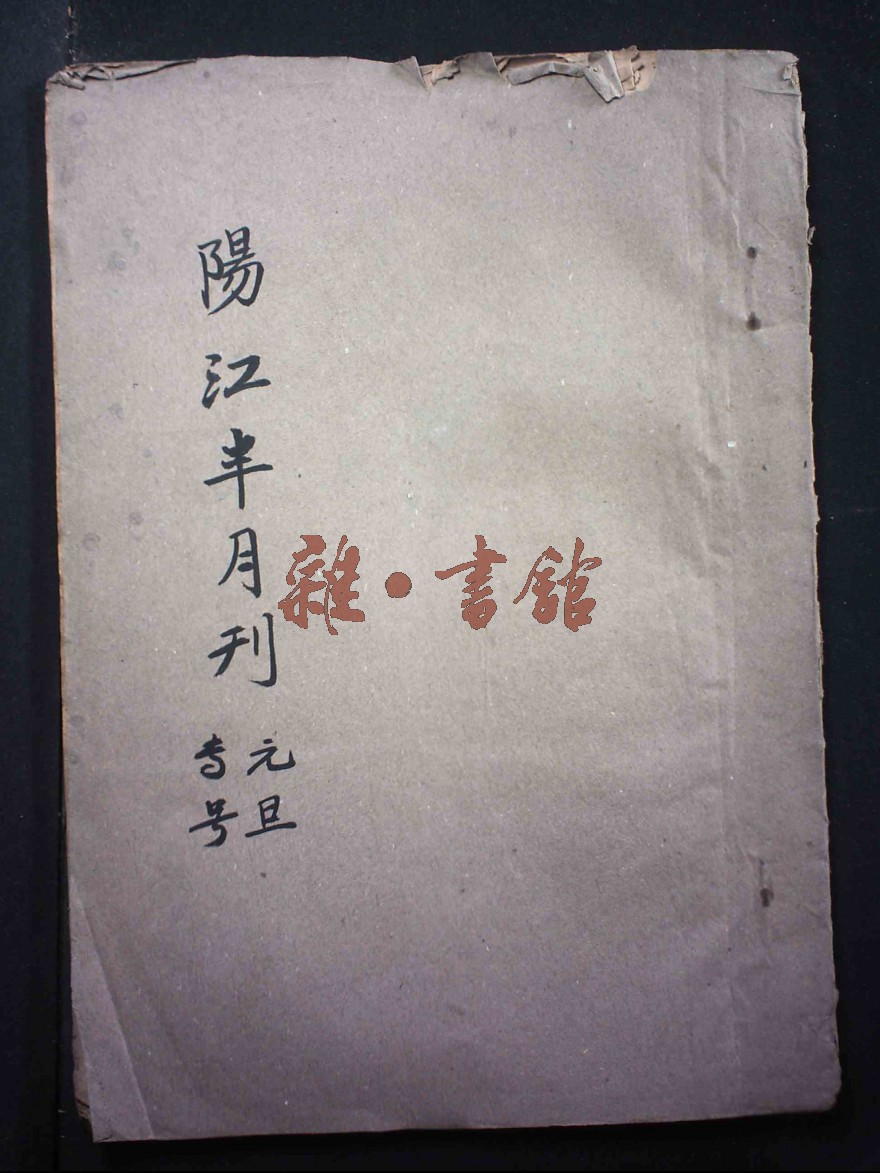 陽江半月刊
元旦
专号
雜·書館